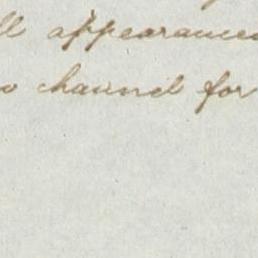 ll appearances
o channel for